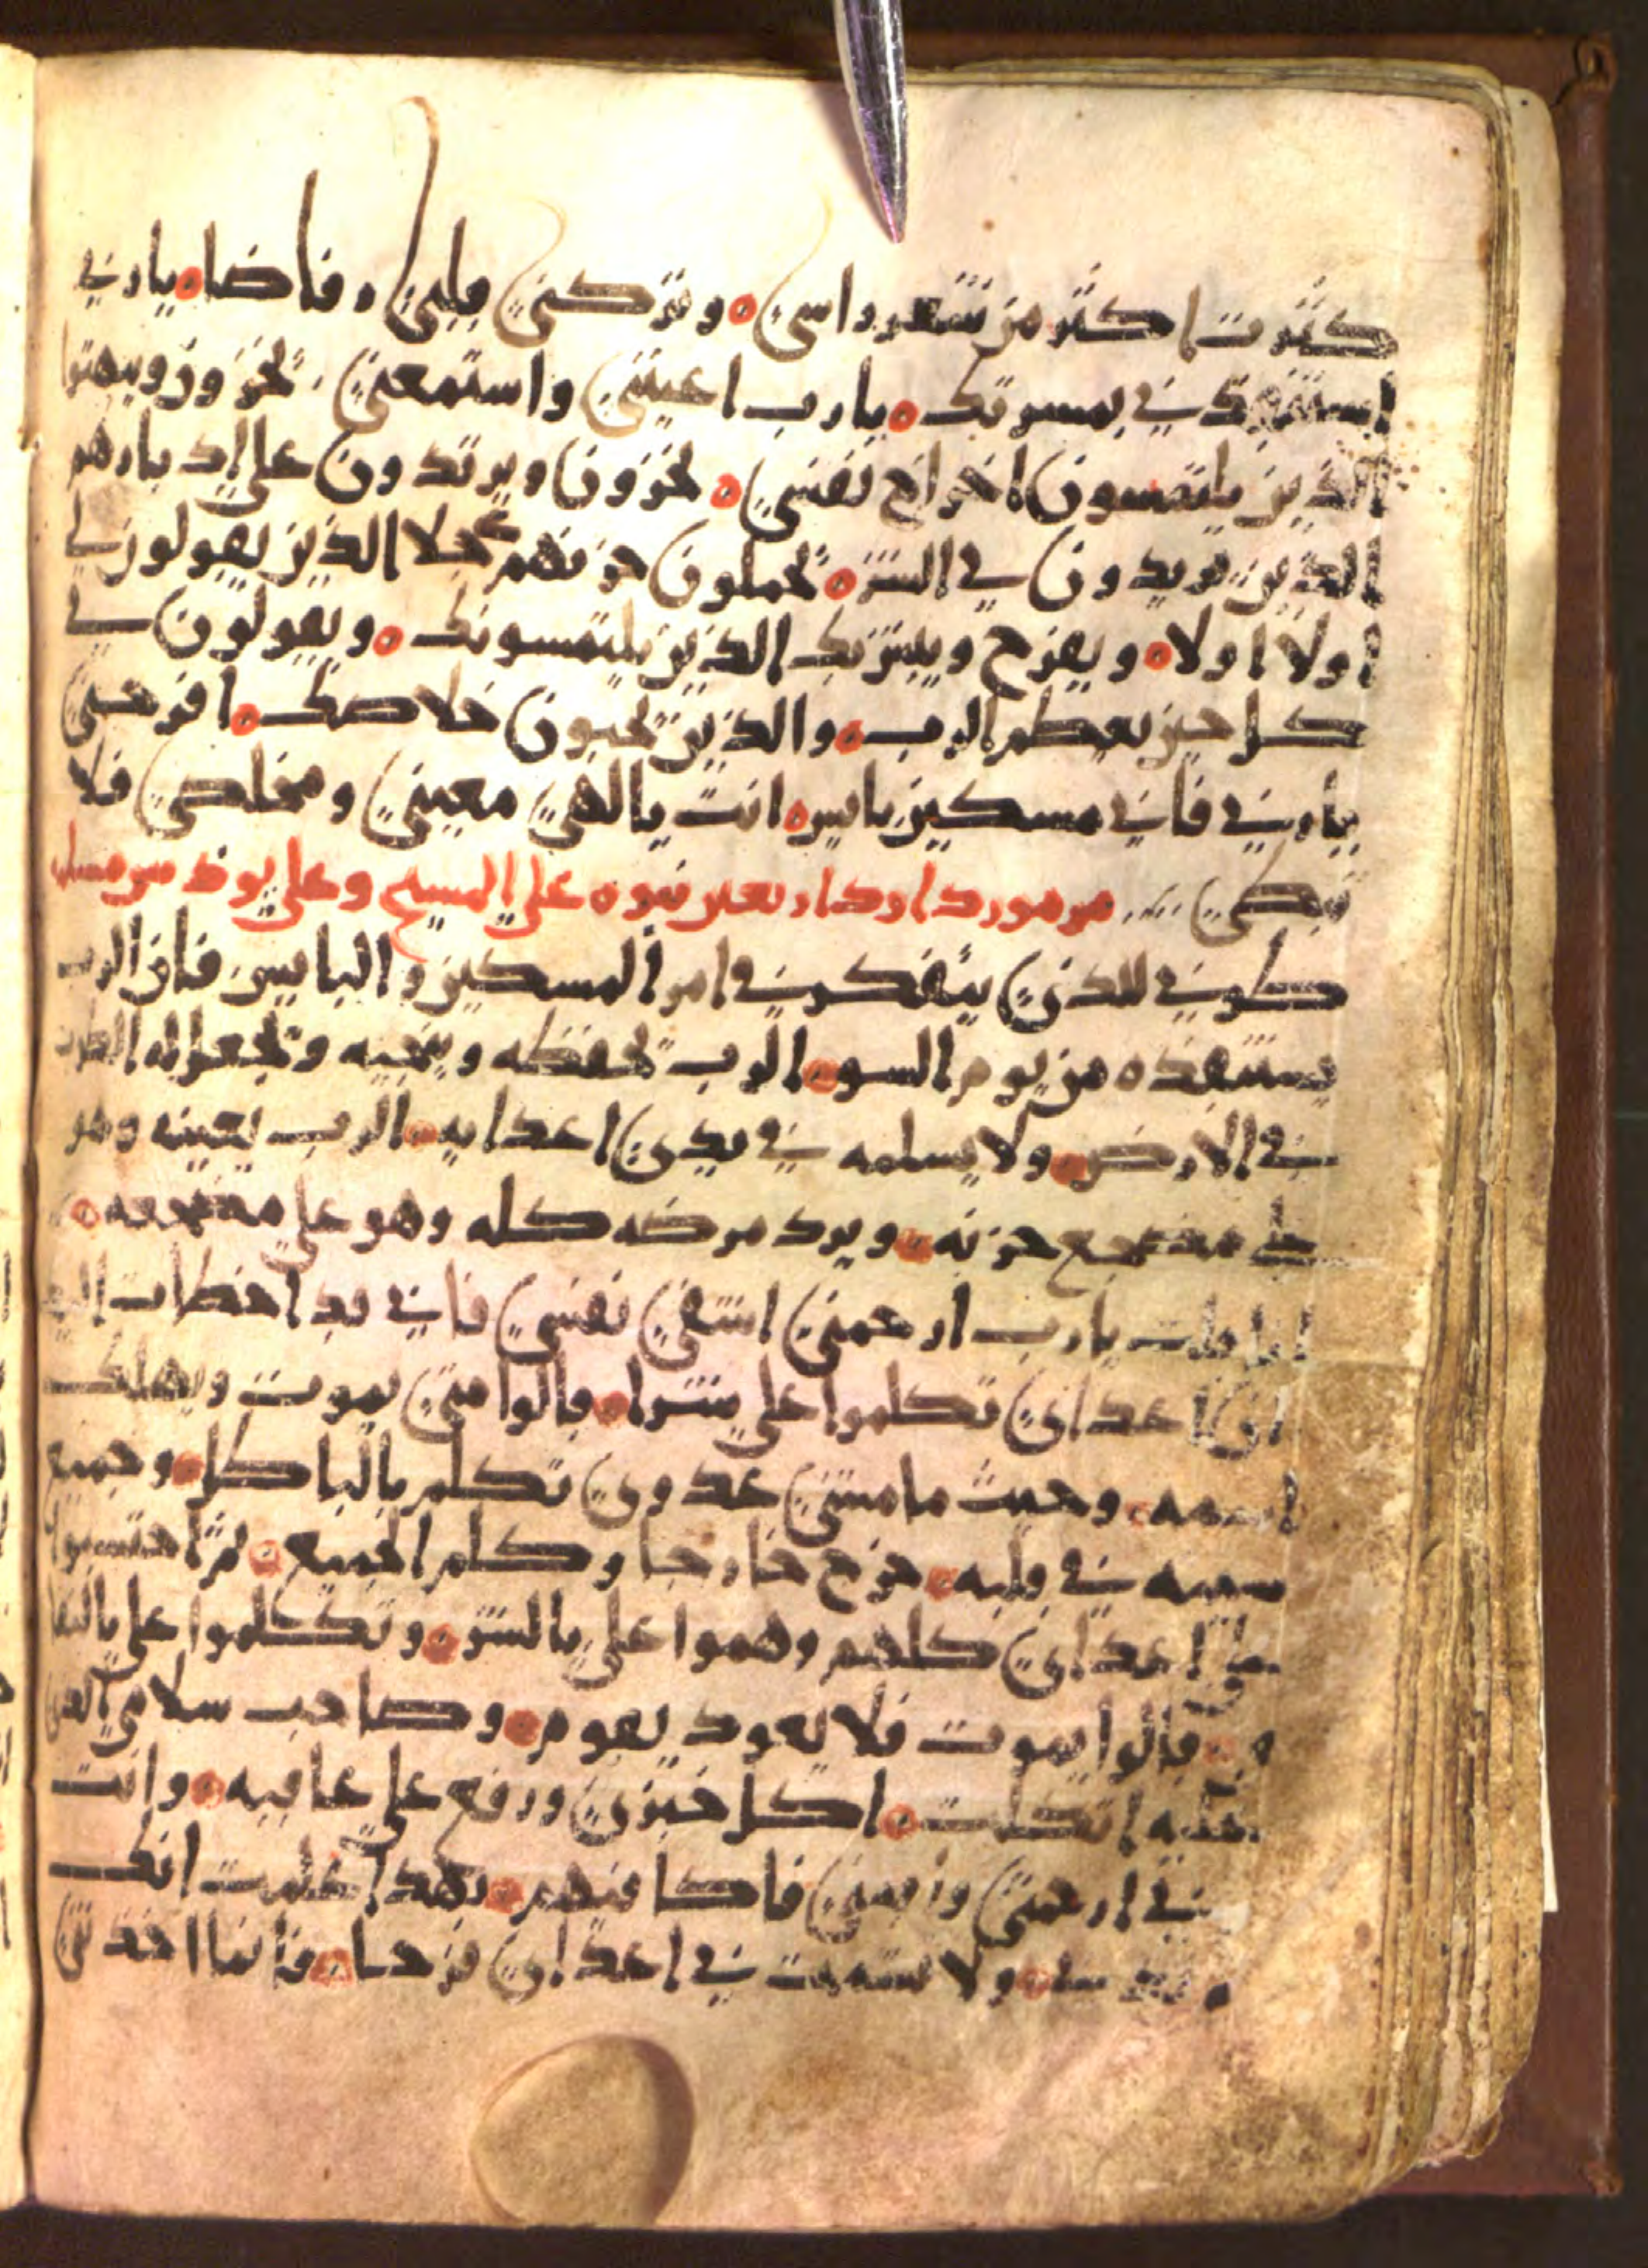 كثرت اكثر من شعر راسي ه وتركني قلبي ه فاضا ه يا ربي
استنقذني بمسرتك ه يا رب اعينني واستمعني ه يخزون ويبهتوا
الذين يلتمسون اخراج نفسي ه يخزون ويرتدون على ادبارهم
الذين يريدون لي الشر ه يحملون حزنهم عجلا الذين يقولون لي
اولا اولا ه ويفرح ويلتزبك الذين يلتمسونك ه ويقولون في
كل حين يعظم الرب ه والذين يحبون خلاصك ه افرحني
يا ربي فاني مسكين بايس ه انت يا الهي معيني ومخلصي فلا
تبطي ∴ مزمور داود
طوبى للذي يتفكر في امر المسكين والبايس فان الرب
يستنقذه من يوم السو ه الرب يحفظه وينجيه ويجعل له الطوب
في الارض ه ولا يسلمه في يدي اعدايه ه الرب يعينه وهو
على مضجع حزنه ه ويرد مرضه كله وهو على مضجعه ه
انا قلت يا رب ارحمني اشفي نفسي فاني قد اخطات اليك
ان اعداي تكلموا علي شرا ه قالوا متى يموت ويهلك
اسمه ه وحيث ما مشى عدوي تكلم بالباطل ه وجميع
سعيه في قلبه ه خرج خارجا وكلم الجميع ه
علي اعداي كلهم وهموا علي بالشر ه وتكلموا علي
قالوا يموت فلا يعود يقوم ه وصاحب سلامي الذي
عليه اتكلت ه اكل خبزي ورفع علي عاقبه ه وانت
ارحمني واقمني فاكافيهم ه بهذا علمت انك
ولا تشمت في اعداي فرحا ه فانما اخذتني